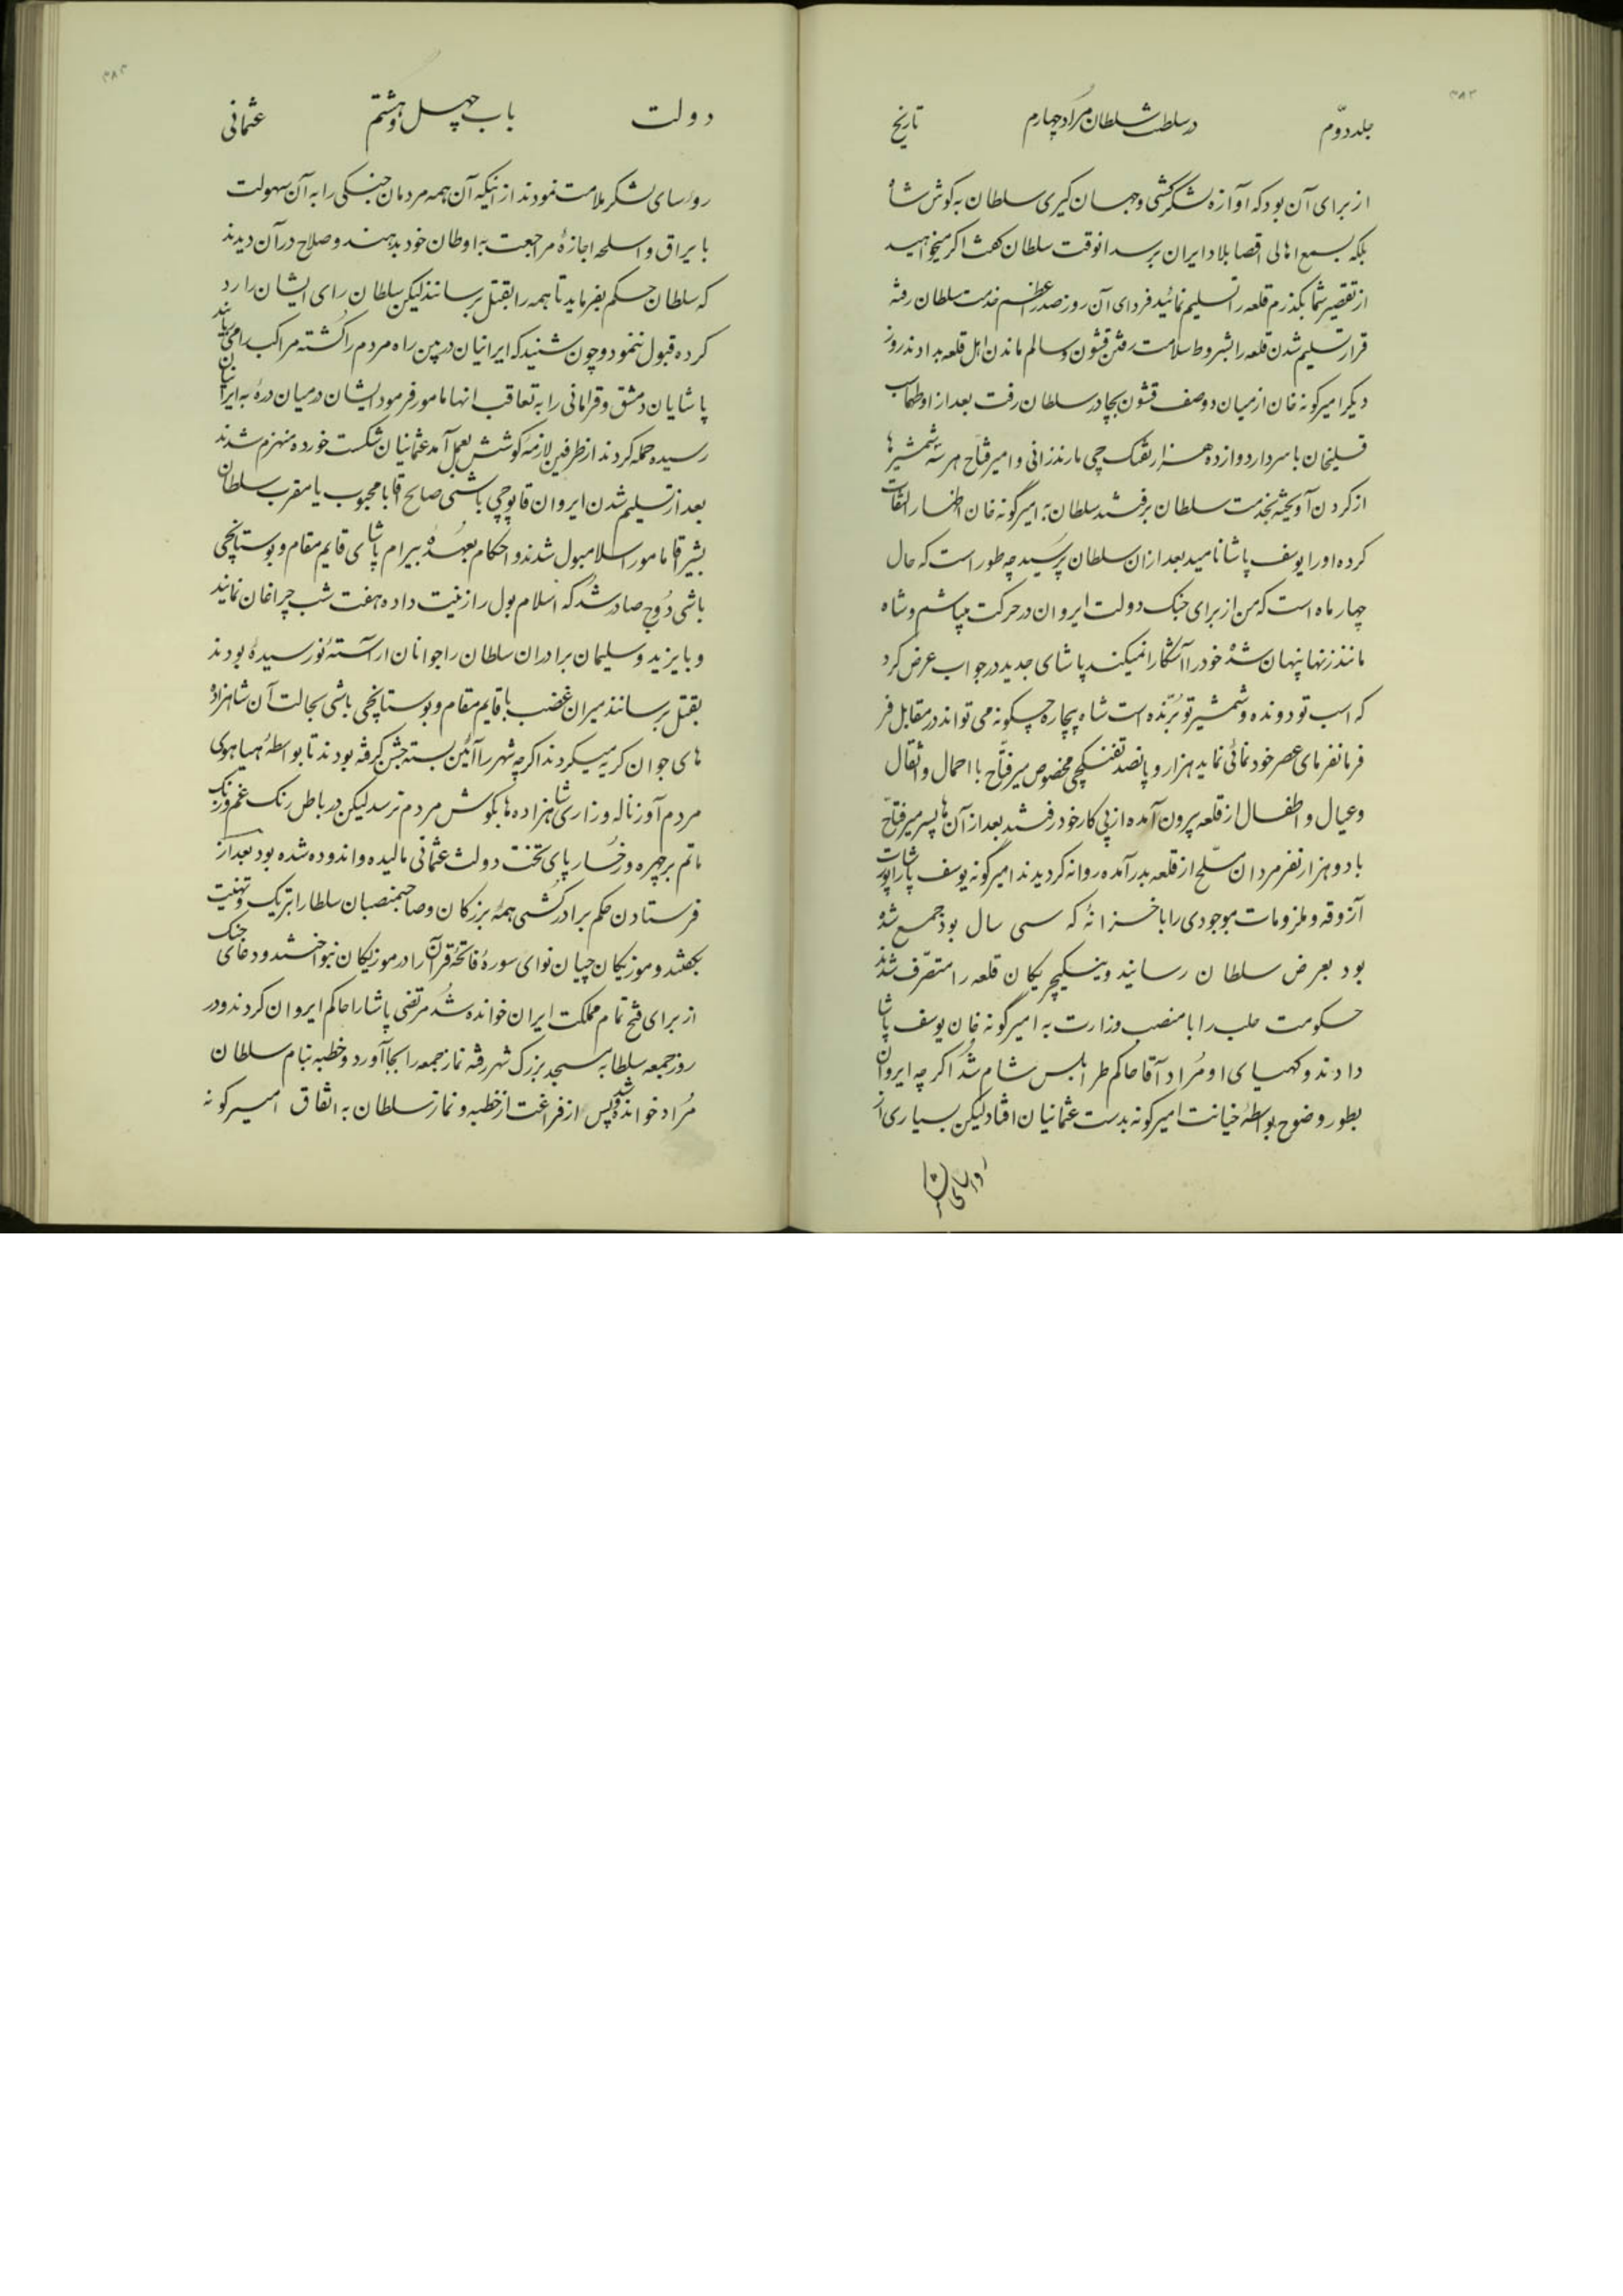 ۳۸۲
جلد دوّم در سلطنت سلطان مراد چهارم تاریخ
از برای آن بود که اوآزه لشکرکشی وجهان کیری سلطان به کوش شاه
بلکه بسمع اهالی اقصا بلاد ایران برسد انوقت سلطان کفت اکر میخواهید
از تقصیر شما بکذرم قلعه را تسلیم نمائید فردای آن روز صدر اعظم خدمت سلطان رفته
قرار تسلیم شدن قلعه را بشروط سلامت رفتن قشون وسالم ماندن اهل قلعه بدادند روز
دیکر امیرکونه خان از میان دو صف قشون بچادر سلطان رفت بعد از او طهماسب
قلیخان با سردار دوازده هزار تفنک چی مازندرانی و امیر فتاح هر سه شمشیرها
از کردن آویخته بخدمت سلطان برفتند سلطان به امیرگونه خان اظهار التفات
کرده او را یوسف پاشا نامید بعد ازان سلطان پرسید چه طور است که حال
چهار ماه است که من از برای جنک دولت ایروان در حرکت میباشم و شاه
مانند زنها پنهان شدهٔ خود را آشکارا نمیکند پاشای جدید در جواب عرض کرد
که اسب تو دونده و شمشیر تو برّنده است شاه بیچاره چکونه می تواند در مقابل فر
فرمانفرمای عصر خود نمائی نماید هزار و پانصد تفنکچی مخصوص میر فتّاح با احمال و اثقال
وعیال و اطفال از قلعه بیرون آمده از پی کار خود رفتند بعد از آن ها پسر میر فتّاح
با دو هزار نفر مردان مسلّح از قلعه بدر آمده روانه کردیدند امیرگونه یوسف پاشا
آزوقه و ملزومات موجودی را با خزانهٔ که سی سال بود جمع شده
بود بعرض سلطان رسانید وینکیچریکان قلعه را متصرّف شدند
حکومت حلب را با منصب وزارت به امیرگونه خان یوسف پاشا
دادند و کهیای او مُراد آقا حاکم طرابلس شام شُد اکر چه ایروان
بطور وضوح بواسطهٔ خیانت امیرکونه بدست عثمانیان افتاد لیکن بسیاری از
رؤسای لشکر
۳۸۳
دولت باب چهل وهشتم عثمانی
روٴسای لشکر ملامت نمودند از اینکه آن همه مردمان جنکی را به آن سهولت
با یراق و اسلحه اجازهٔ مراجعت به اوطان خود بدهند و صلاح در آن دیدند
که سلطان حکم بفرماید تا همه را بقتل برسانند لیکن سلطان رای ایشان را رد
کرده قبول ننمود و چون شنید که ایرانیان در بین راه مردم را کشته مراکب را می‌رانند
پاشایان دمشق و قرامانی را به تعاقب انها مامور فرمود ایشان در میان درهٔ به ایرانیان
رسیده حمله کردند از طرفین لازمهٔ کوشش بعمل آمد عثمانیان شکست خورده منهزم شدند
بعد از تسلیم شدن ایروان قاپوچی باشی صالح آقا با محبوب یا مقرب سلطان
بشیر آقا مامور اسلامبول شدند و احکام بعهدهٔ بیرام پاشای قایم مقام و بوستانچی
باشی دُوج صادر شُد که اسلام بول را زینت داده هفت شب چراغان نمایند
و بایزید و سلیمان برادران سلطان را جوانان آراستهٔ نورسیدهٔ بودند
بقتل برسانند میران غضب با قایم مقام و بوستانچی باشی بحالت آن شاهزاده
های جوان کریه میکردند اکر چه شهر را آئین بسته جشن کرفته بودند تا بواسطهٔ هیاهوی
مردم آوز ناله و زاری شاهزاده ها بکوش مردم نرسد لیکن در باطن رنک غم ورنک
ماتم بر چهره و رخسار پای تخت دولت عثمانی مالیده و اندوده شده بود بعد از
فرستادن حکم برادر کشی همهٔ بزرکان وصاحبمنصبان سلطانرا تبریک وتهنیت
بکفتند و موزیکان چیان نوای سورهٔ فاتحهٔ قرآن را در موزیکان بنواختند و دعای جنک
از برای فتح تمام مملکت ایران خوانده شُد مرتضی پاشا را حاکم ایروان کردند و در
روز جمعه سلطان به مسجد بزرک شهر رفته نماز جمعه را بجا آورد و خطبه بنام سلطان
مُراد خوانده شد و پس از فراغت از خطبه و نماز سلطان به اتّفاق امیرکونه